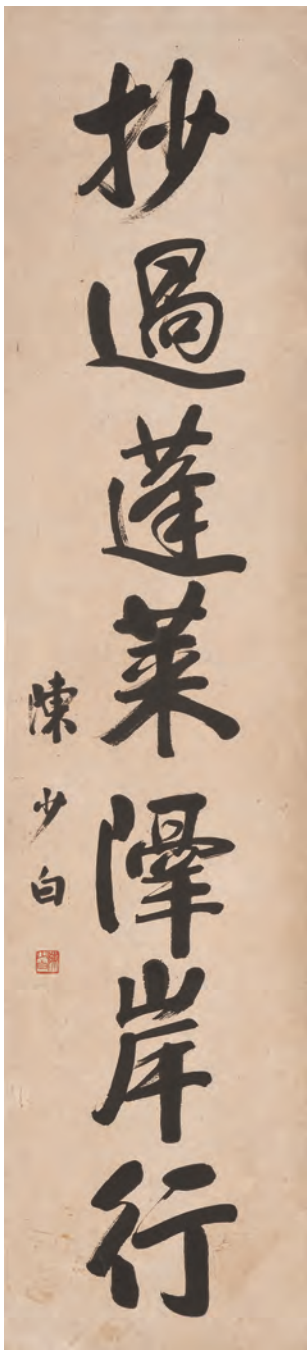 抄過蓬萊隔岸行
陳少白